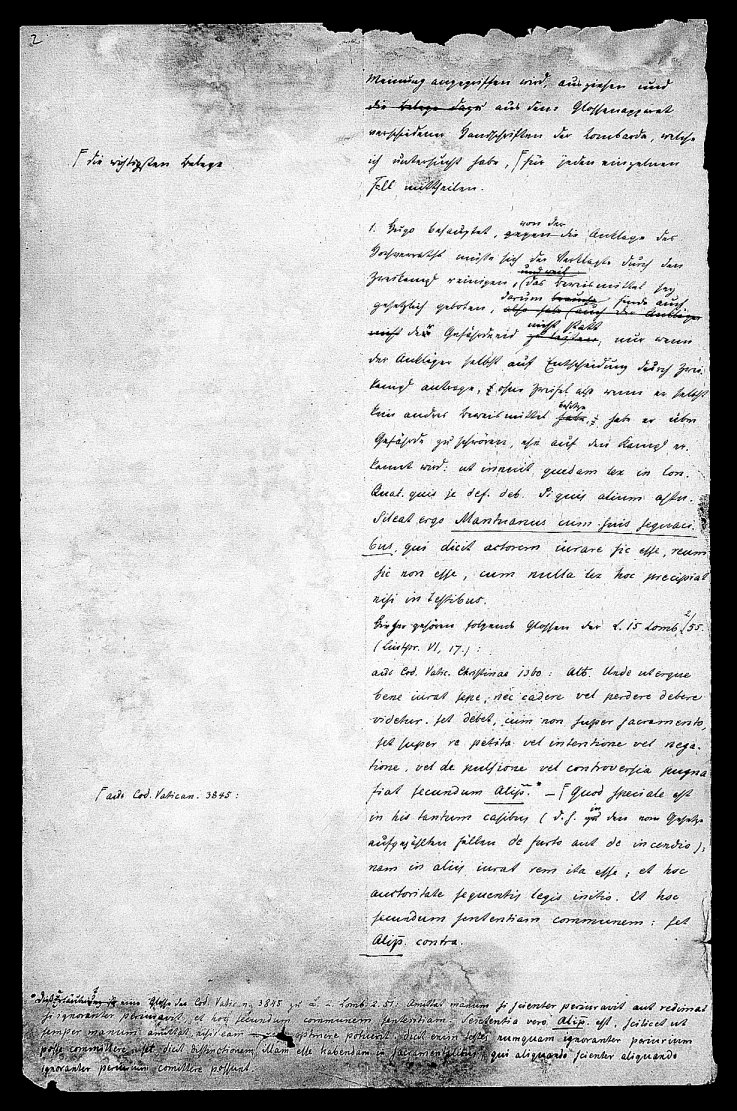 2
Meinung angegriffen wird, ausziehen und
die Belege dazu aus dem Glossenapparat
verschiedener Handschriften der Lombarda, welche
ich untersucht habe, ⌈ für jeden einzelnen
Fall mittheilen.
⌈ die wichtigsten Belege
1. Hugo behauptet, gegen von der die Anklage des
Hochverraths müsse sich der Verklagte durch den
Zweikampf reinigen, und weil (das Beweismittel sey
gesetzlich geboten, darum finde auch
nicht der Gefährdeeid nicht statt, nur wenn
der Ankläger selbst auf Entscheidung durch Zwei-
kampf antrage, ohne Zweifel also wenn er selbst
kein andres Beweismittel habe, habe er über
Gefährde zu schwören, ehe auf den Kampf er-
kannt wird: ut innuit quedam lex in Lon.
Qual. quis se def. deb. Si quis alium astu.
Sileat ergo Mantuanus cum suis sequaci-
bus, qui dicit actorem iurare sic esse, reum
sic non esse, cum nulla lex hoc precipiat
nisi in testibus.
Hieher gehören folgende Glossen der L. 15 Lomb. 2/55.
(Liutpr. VI, 17.):
aus Cod. Vatic. Christinae 1360: Alb. Unde uterque
bene iurat sepe, nec cadere vel perdere debere
videtur. set debet, cum non super sacramento,
set super re petita vel intentione vel nega-
tione, vel de pulsione vel controversia pugna
fiat secundum Alip̄.* — ⌈ Quod speciale est
⌈ aus Cod. Vatican. 3845:
in his tantum casibus (d. h. in den vom Gesetze
aufgezählten Fällen de furto aut de incendio);
nam in aliis iurat rem ita esse; et hoc
auctoritate sequentis legis initio. Et hoc
secundum sententiam communem: set
Alip̄. contra.
eine Glosse des Cod. Vatic. n. 3845 zu L. 2. Lomb. 2. 51: Amittat manum si scienter periuravit aut redimat
si ignoranter periuravit, et hoc secundum communem sententiam. Sententia vero Alip̄. est, scilicet ut
semper manum amittat, nisi eam optinere potuerit. dicit enim iste, numquam ignoranter periurium
posse committere, set dicit distinctionem illam esse habendam in sacramentalibus, qui aliquando scienter aliquando
ignoranter periurium comittere possunt.